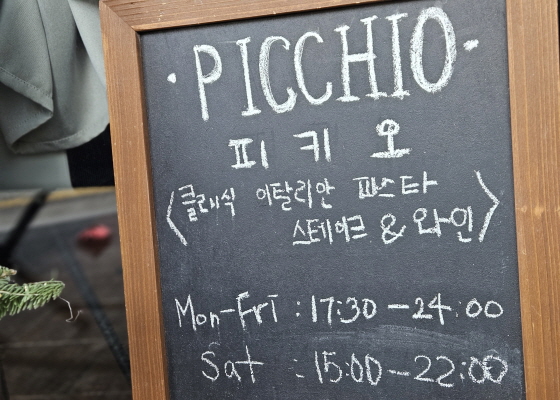 ·PICCHIO·
피키오
〈클래식 이탈리안 파스타
스테이크 & 와인〉
Mon-Fri : 17:30 - 24:00
Sat : 15:00 - 22:00